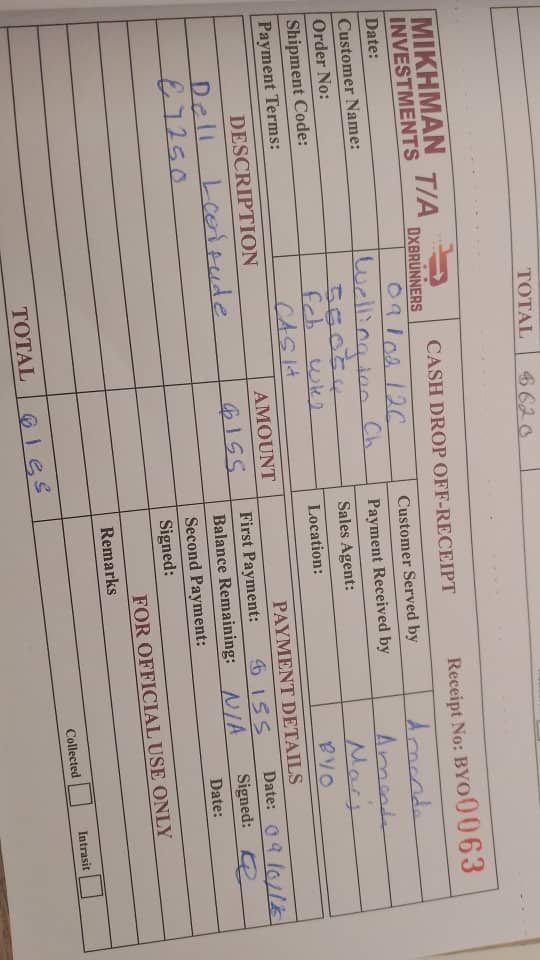 TOTAL $620
MIKHMAN T/A DXBRUNNERS
INVESTMENTS
CASH DROP OFF-RECEIPT
Receipt No: BYO0063
Date: 09/02/26
Customer Name: Wellington Ch
Order No: 55054
Shipment Code: Feb wk2
Payment Terms: CASH
Customer Served by Amanda
Payment Received by Amanda
Sales Agent:
Location: BYO
DESCRIPTION AMOUNT
Dell $155
E7250
TOTAL $155
PAYMENT DETAILS
First Payment: $155 Date:
Balance Remaining: N/A Signed:
Second Payment: Date:
Signed:
FOR OFFICIAL USE ONLY
Remarks
Collected Intrasit